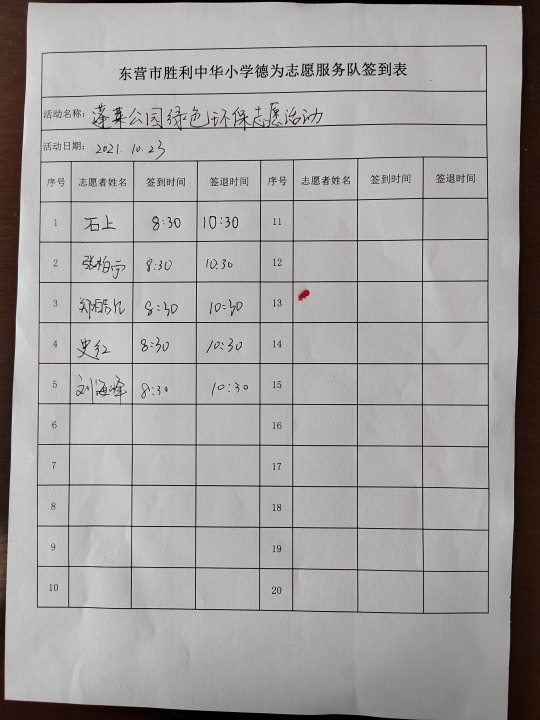 东营市胜利中华小学德为志愿服务队签到表
活动名称: 蓬莱公园绿色环保志愿活动
活动日期: 2021.10.23
序号 志愿者姓名 签到时间 签退时间 序号 志愿者姓名 签到时间 签退时间
1 石上 8:30 10:30 11
2 张柏宁 8:30 10:30 12
3 8:30 10:30 13
4 史红 8:30 10:30 14
5 刘海峰 8:30 10:30 15
6 16
7 17
8 18
9 19
10 20